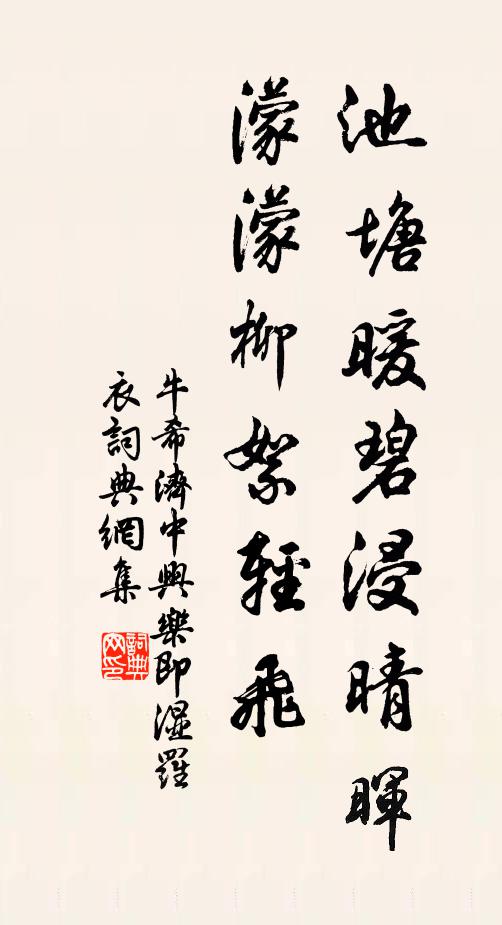 池塘暖碧浸晴暉
濛濛柳絮輕飛
牛希濟中興樂即濕羅
衣詞典網集
詞典網印